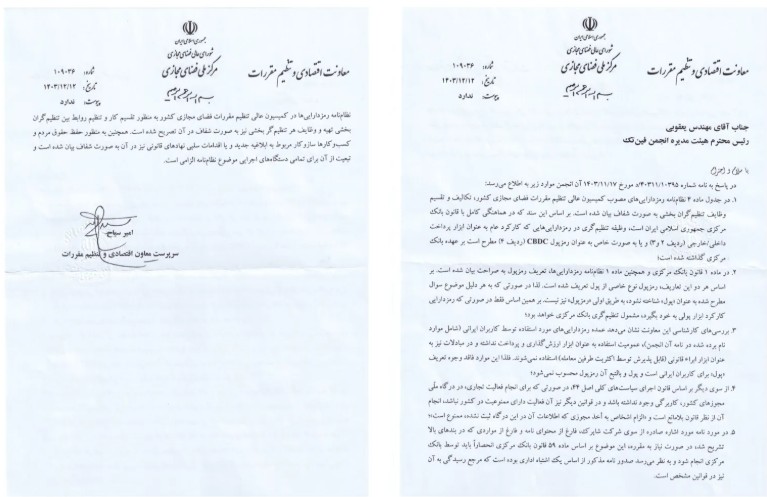 جمهوری اسلامی ایران
شورای عالی فضای مجازی
مرکز ملی فضای مجازی
معاونت اقتصادی و تنظیم مقررات
شماره: ۱۰۹۰۳۶
تاریخ: ۱۴۰۳/۱۲/۱۲
پیوست: ندارد
جناب آقای مهندس یعقوبی
رئیس محترم هیئت مدیره انجمن فین‌تک
با سلام و احترام
در پاسخ به نامه شماره ۴۰۳۱۱/۱۰۳۹۵/د مورخ ۱۴۰۳/۱۱/۱۷ آن انجمن موارد زیر به اطلاع می‌رسد:
۱. در جدول ماده ۴ نظام‌نامه رمزدارایی‌های مصوب کمیسیون عالی تنظیم مقررات فضای مجازی کشور، تکالیف و تقسیم
وظایف تنظیم‌گران بخشی به صورت شفاف بیان شده است. بر اساس این سند که در هماهنگی کامل با قانون بانک
مرکزی جمهوری اسلامی ایران است، وظیفه تنظیم‌گری در رمزدارایی‌هایی که کارکرد عام به عنوان ابزار پرداخت
داخلی/خارجی (ردیف ۲ و ۳) و یا به صورت خاص به عنوان رمزپول CBDC (ردیف ۶) مطرح است بر عهده بانک
مرکزی گذاشته شده است؛
۲. در ماده ۱ قانون بانک مرکزی و همچنین ماده ۱ نظام‌نامه رمزدارایی‌ها، تعریف رمزپول به صراحت بیان شده است. بر
اساس هر دو این تعاریف، رمزپول نوع خاصی از پول تعریف شده است. لذا در صورتی که به هر دلیل موضوع سوال
مطرح شده به عنوان «پول» شناخته نشود، به طریق اولی «رمزپول» نیز نیست. بر همین اساس فقط در صورتی که رمزدارایی
کارکرد ابزار پولی به خود بگیرد، مشمول تنظیم‌گری بانک مرکزی خواهد بود؛
۳. بررسی‌های کارشناسی این معاونت نشان می‌دهد عمده رمزدارایی‌های مورد استفاده توسط کاربران ایرانی (شامل موارد
نام برده شده در نامه آن انجمن)، عمومیت استفاده به عنوان ابزار ارزش‌گذاری و پرداخت نداشته و در مبادلات نیز به
عنوان ابزار ابراء قانونی (قابل پذیرش توسط اکثریت طرفین معامله) استفاده نمی‌شوند. فلذا این موارد فاقد وجوه تعریف
«پول» برای کاربران ایرانی است و پول و بالتبع آن رمزپول محسوب نمی‌شود؛
۴. از سوی دیگر بر اساس قانون اجرای سیاست‌های کلی اصل ۴۴، در صورتی که برای انجام فعالیت تجاری، در درگاه ملّی
مجوزهای کشور، کاربرگی وجود نداشته باشد و در قوانین دیگر نیز آن فعالیت دارای ممنوعیت در کشور نباشد، انجام
آن از نظر قانون بلامانع است و «الزام اشخاص به أخذ مجوزی که اطلاعات آن در این درگاه ثبت نشده، ممنوع است»؛
۵. در مورد نامه مورد اشاره صادره از سوی شرکت شاپرک، فارغ از محتوای نامه و فارغ از مواردی که در بندهای بالا
تشریح شد، در صورت نیاز به مقرره، این موضوع بر اساس ماده ۵۹ قانون بانک مرکزی انحصاراً باید توسط بانک
مرکزی انجام شود و به نظر می‌رسد صدور نامه مذکور از اساس یک اشتباه اداری بوده است که مرجع رسیدگی به آن
نیز در قوانین مشخص است.
جمهوری اسلامی ایران
شورای عالی فضای مجازی
مرکز ملی فضای مجازی
معاونت اقتصادی و تنظیم مقررات
شماره: ۱۰۹۰۳۶
تاریخ: ۱۴۰۳/۱۲/۱۲
پیوست: ندارد
نظام‌نامه رمزدارایی‌ها در کمیسیون عالی تنظیم مقررات فضای مجازی کشور به منظور تقسیم کار و تنظیم روابط بین تنظیم‌گران
بخشی تهیه و وظایف هر تنظیم‌گر بخشی نیز به صورت شفاف در آن تصریح شده است. همچنین به منظور حفظ حقوق مردم و
کسب‌وکارها سازوکار مربوط به ابلاغیه جدید و یا اقدامات سلبی نهادهای قانونی نیز در آن به صورت شفاف بیان شده است و
تبعیت از آن برای تمامی دستگاه‌های اجرایی موضوع نظام‌نامه الزامی است.
امیر سیاح
سرپرست معاون اقتصادی و تنظیم مقررات